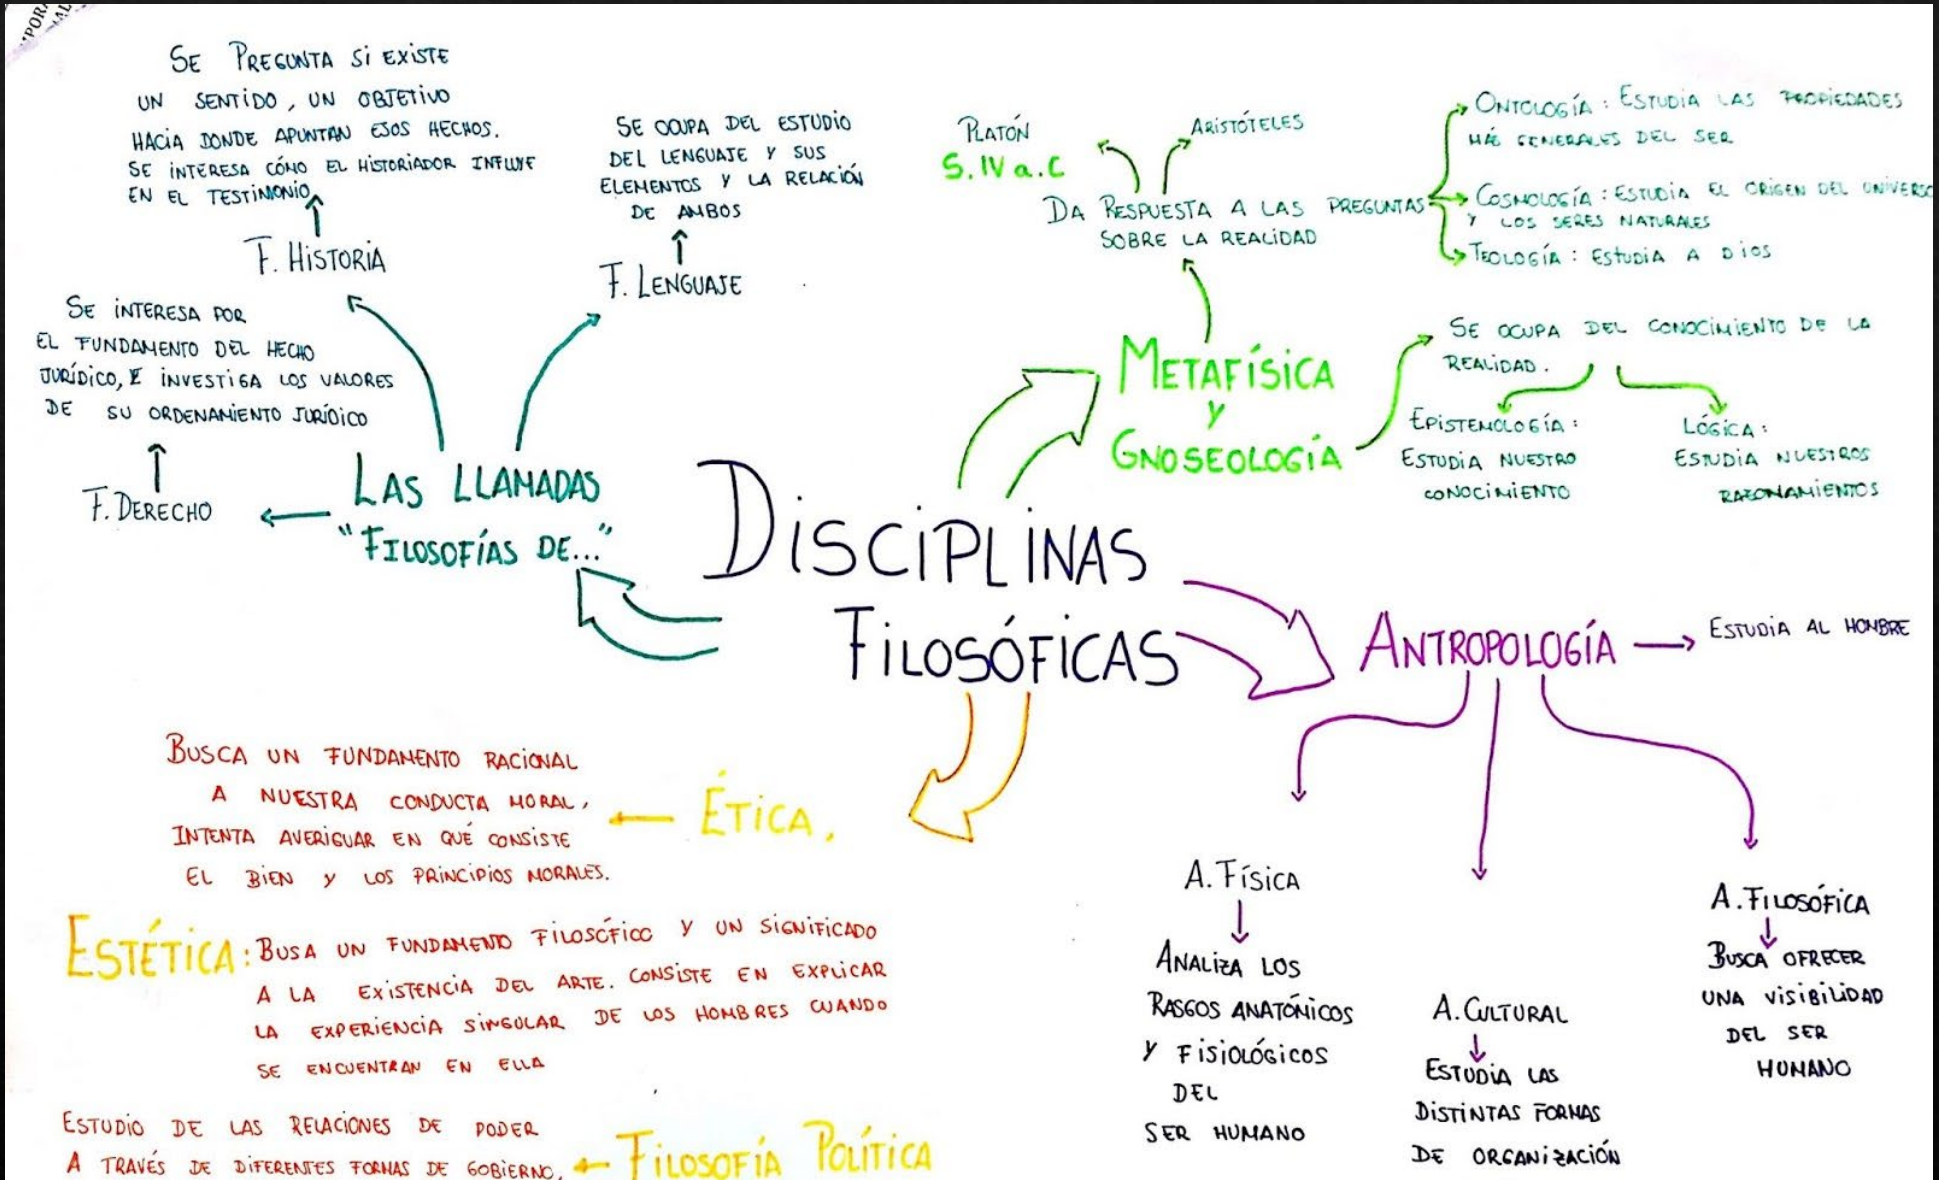 SE PREGUNTA SI EXISTE
UN SENTIDO, UN OBJETIVO
HACIA DONDE APUNTAN ESOS HECHOS.
SE INTERESA CÓMO EL HISTORIADOR INFLUYE
EN EL TESTIMONIO
F. HISTORIA
SE OCUPA DEL ESTUDIO
DEL LENGUAJE Y SUS
ELEMENTOS Y LA RELACIÓN
DE AMBOS
F. LENGUAJE
SE INTERESA POR
EL FUNDAMENTO DEL HECHO
JURÍDICO, E INVESTIGA LOS VALORES
DE SU ORDENAMIENTO JURÍDICO
F. DERECHO
LAS LLAMADAS
"FILOSOFÍAS DE..."
PLATÓN
S. IV a. C
ARISTÓTELES
DA RESPUESTA A LAS PREGUNTAS
SOBRE LA REALIDAD
ONTOLOGÍA: ESTUDIA LAS PROPIEDADES
MÁS GENERALES DEL SER
COSMOLOGÍA: ESTUDIA EL ORIGEN DEL UNIVERSO
Y LOS SERES NATURALES
TEOLOGÍA: ESTUDIA A DIOS
METAFÍSICA
Y
GNOSEOLOGÍA
SE OCUPA DEL CONOCIMIENTO DE LA
REALIDAD.
EPISTEMOLOGÍA:
ESTUDIA NUESTRO
CONOCIMIENTO
LÓGICA:
ESTUDIA NUESTROS
RAZONAMIENTOS
DISCIPLINAS
FILOSÓFICAS
ANTROPOLOGÍA
ESTUDIA AL HOMBRE
A. FÍSICA
ANALIZA LOS
RASGOS ANATÓMICOS
Y FISIOLÓGICOS
DEL
SER HUMANO
A. CULTURAL
ESTUDIA LAS
DISTINTAS FORMAS
DE ORGANIZACIÓN
A. FILOSÓFICA
BUSCA OFRECER
UNA VISIBILIDAD
DEL SER
HUMANO
BUSCA UN FUNDAMENTO RACIONAL
A NUESTRA CONDUCTA MORAL,
INTENTA AVERIGUAR EN QUÉ CONSISTE
EL BIEN Y LOS PRINCIPIOS MORALES.
ÉTICA.
ESTÉTICA: BUSA UN FUNDAMENTO FILOSÓFICO Y UN SIGNIFICADO
A LA EXISTENCIA DEL ARTE. CONSISTE EN EXPLICAR
LA EXPERIENCIA SINGULAR DE LOS HOMBRES CUANDO
SE ENCUENTRAN EN ELLA
ESTUDIO DE LAS RELACIONES DE PODER
A TRAVÉS DE DIFERENTES FORMAS DE GOBIERNO.
FILOSOFÍA POLÍTICA